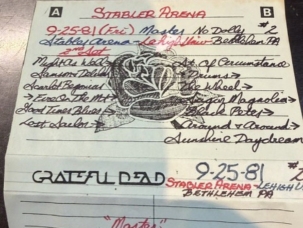 A STABLER ARENA B
9-25-81 (Fri) Master No Dolby #2
Stabler Arena - Lehigh Univ - Bethlehem PA
2nd Set
Might As Well
Samson Delilah
Scarlet Begonias
→ Fire On The Mt →
Good Times Blues
Lost Sailor →
St. Of Circumstance
→ Drums →
The Wheel →
Sugar Magnolia →
Black Peter →
Around + Around →
Sunshine Daydream
GRATEFUL DEAD 9-25-81 #2
STABLER ARENA - LEHIGH U
BETHLEHEM PA
"Master"